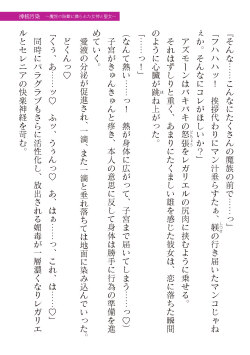 「そんな……こんなにたくさんの魔族の前で……っ」
「フハハハッ！　挨拶代わりにマン汁垂らすたぁ、躾の行き届いたマンコじゃね
ぇか、そんなにコレがほしいか？」
アズモーンはバキバキの怒張をレガリエルの尻肉に挟むように乗せる。
それはずしりと重く、あまりにもたくましい雄を感じた彼女は、恋に落ちた瞬間
のように心臓が跳ねるのがわかった。
「……っ！」
（なんて熱い……っ！　熱が身体に広がって、子宮まで届いてしまう……っ♡）
子宮がきゅんきゅんと疼き、本人の意思に反して身体は勝手に行為の準備を進
めていく。
愛液の分泌が促進され、一滴、また一滴と垂れ落ちては地面に染み込んでいった。
どくんっ♡
「くぅ、あ……ッ♡　ふッ、ううんっ♡　あ、はぁ……っ、これ、は……♡」
同時にパラグラブもさらに活性化し、放出される媚毒が一層濃くなりレガリエ
ルとセレニアの快楽神経を苛む。